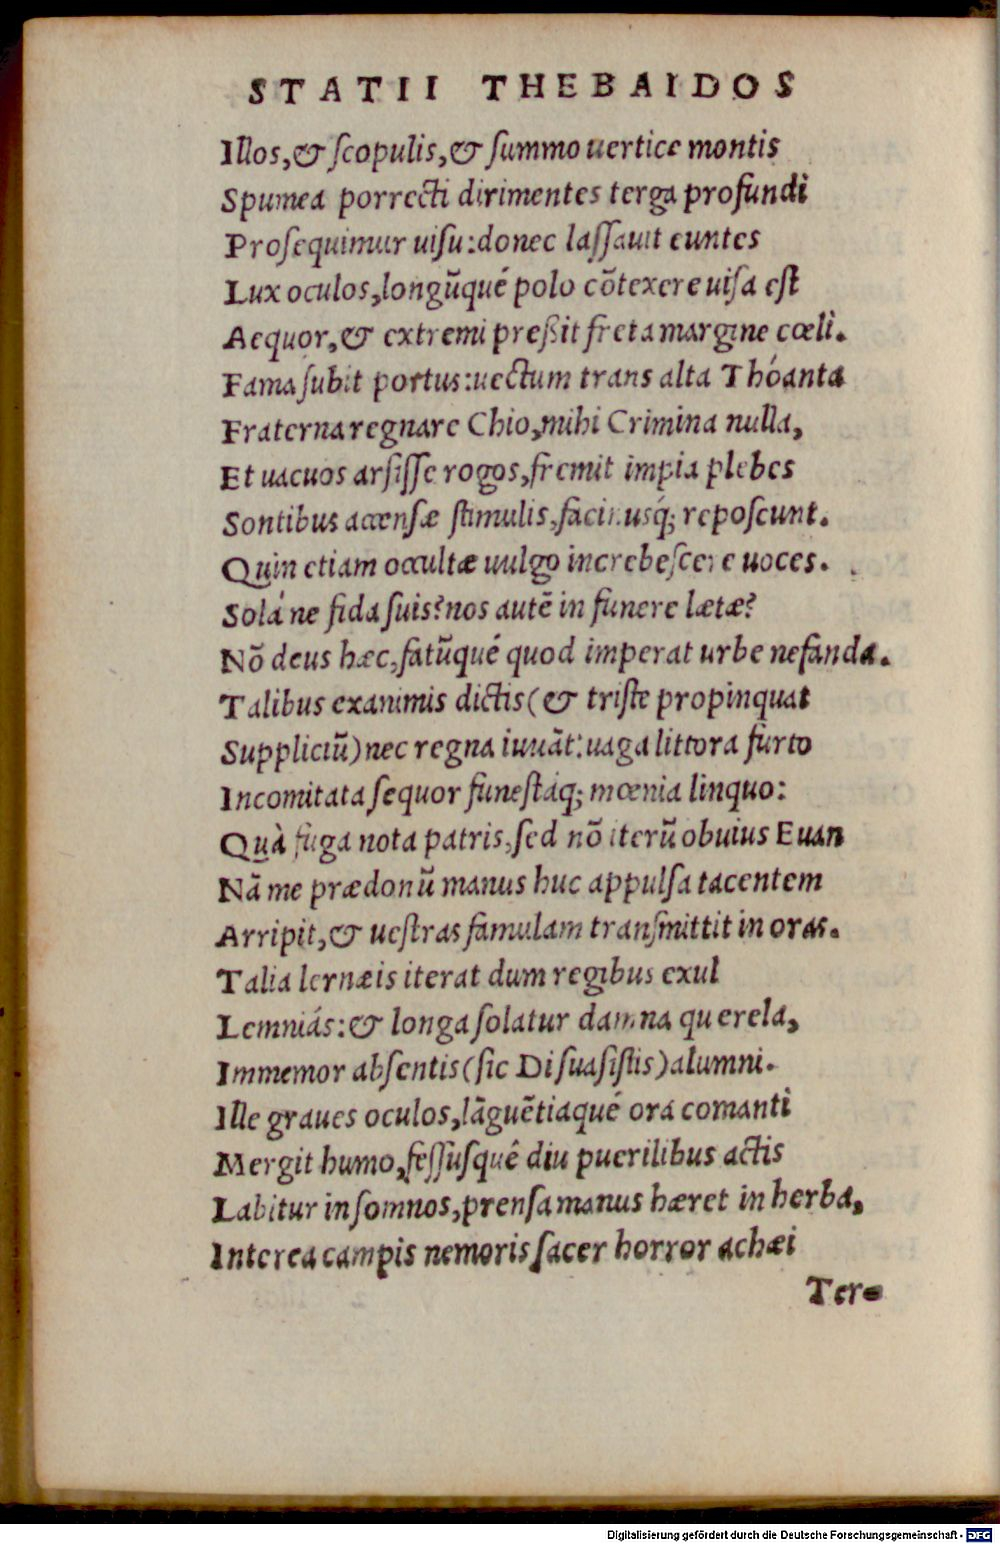 STATII THEBAIDOS
Illos,& ſcopulis,& ſummo uertice montis
Spumea porrecti dirimentes terga profundi
Proſequimur uiſu:donec laſſauit euntes
Lux oculos,longũqué polo cõtexere uiſa eſt
Aequor,& extremi preßit freta margine cœli.
Fama ſubit portus:uectum trans alta Thóanta
Fraterna regnare Chio,mihi Crimina nulla,
Et uacuos arſiſſe rogos,fremit impia plebes
Sontibus accenſæ ſtimulis,facinusq́; repoſcunt.
Quin etiam occultæ uulgo increbeſcere uoces.
Solá ne fida ſuis?nos autẽ in funere lætæ?
Nõ deus hæc,fatũqué quod imperat urbe nefanda.
Talibus exanimis dictis(& triſte propinquat
Suppliciũ)nec regna iuuãt:uaga littora furto
Incomitata ſequor funeſtaq́; mœnia linquo:
Quà fuga nota patris,ſed nõ iterũ obuius Euan
Nã me prædonũ manus huc appulſa tacentem
Arripit,& ueſtras famulam tranſmittit in oras.
Talia lernæis iterat dum regibus exul
Lemniás:& longa ſolatur damna querela,
Immemor abſentis(ſic Di ſuaſiſtis)alumni.
Ille graues oculos,lãguẽtiaqué ora comanti
Mergit humo,feſſuſqué diu puerilibus actis
Labitur in ſomnos,prenſa manus hæret in herba,
Interea campis nemoris ſacer horror achæi
Ter-
Digitalisierung gefördert durch die Deutsche Forschungsgemeinschaft - DFG